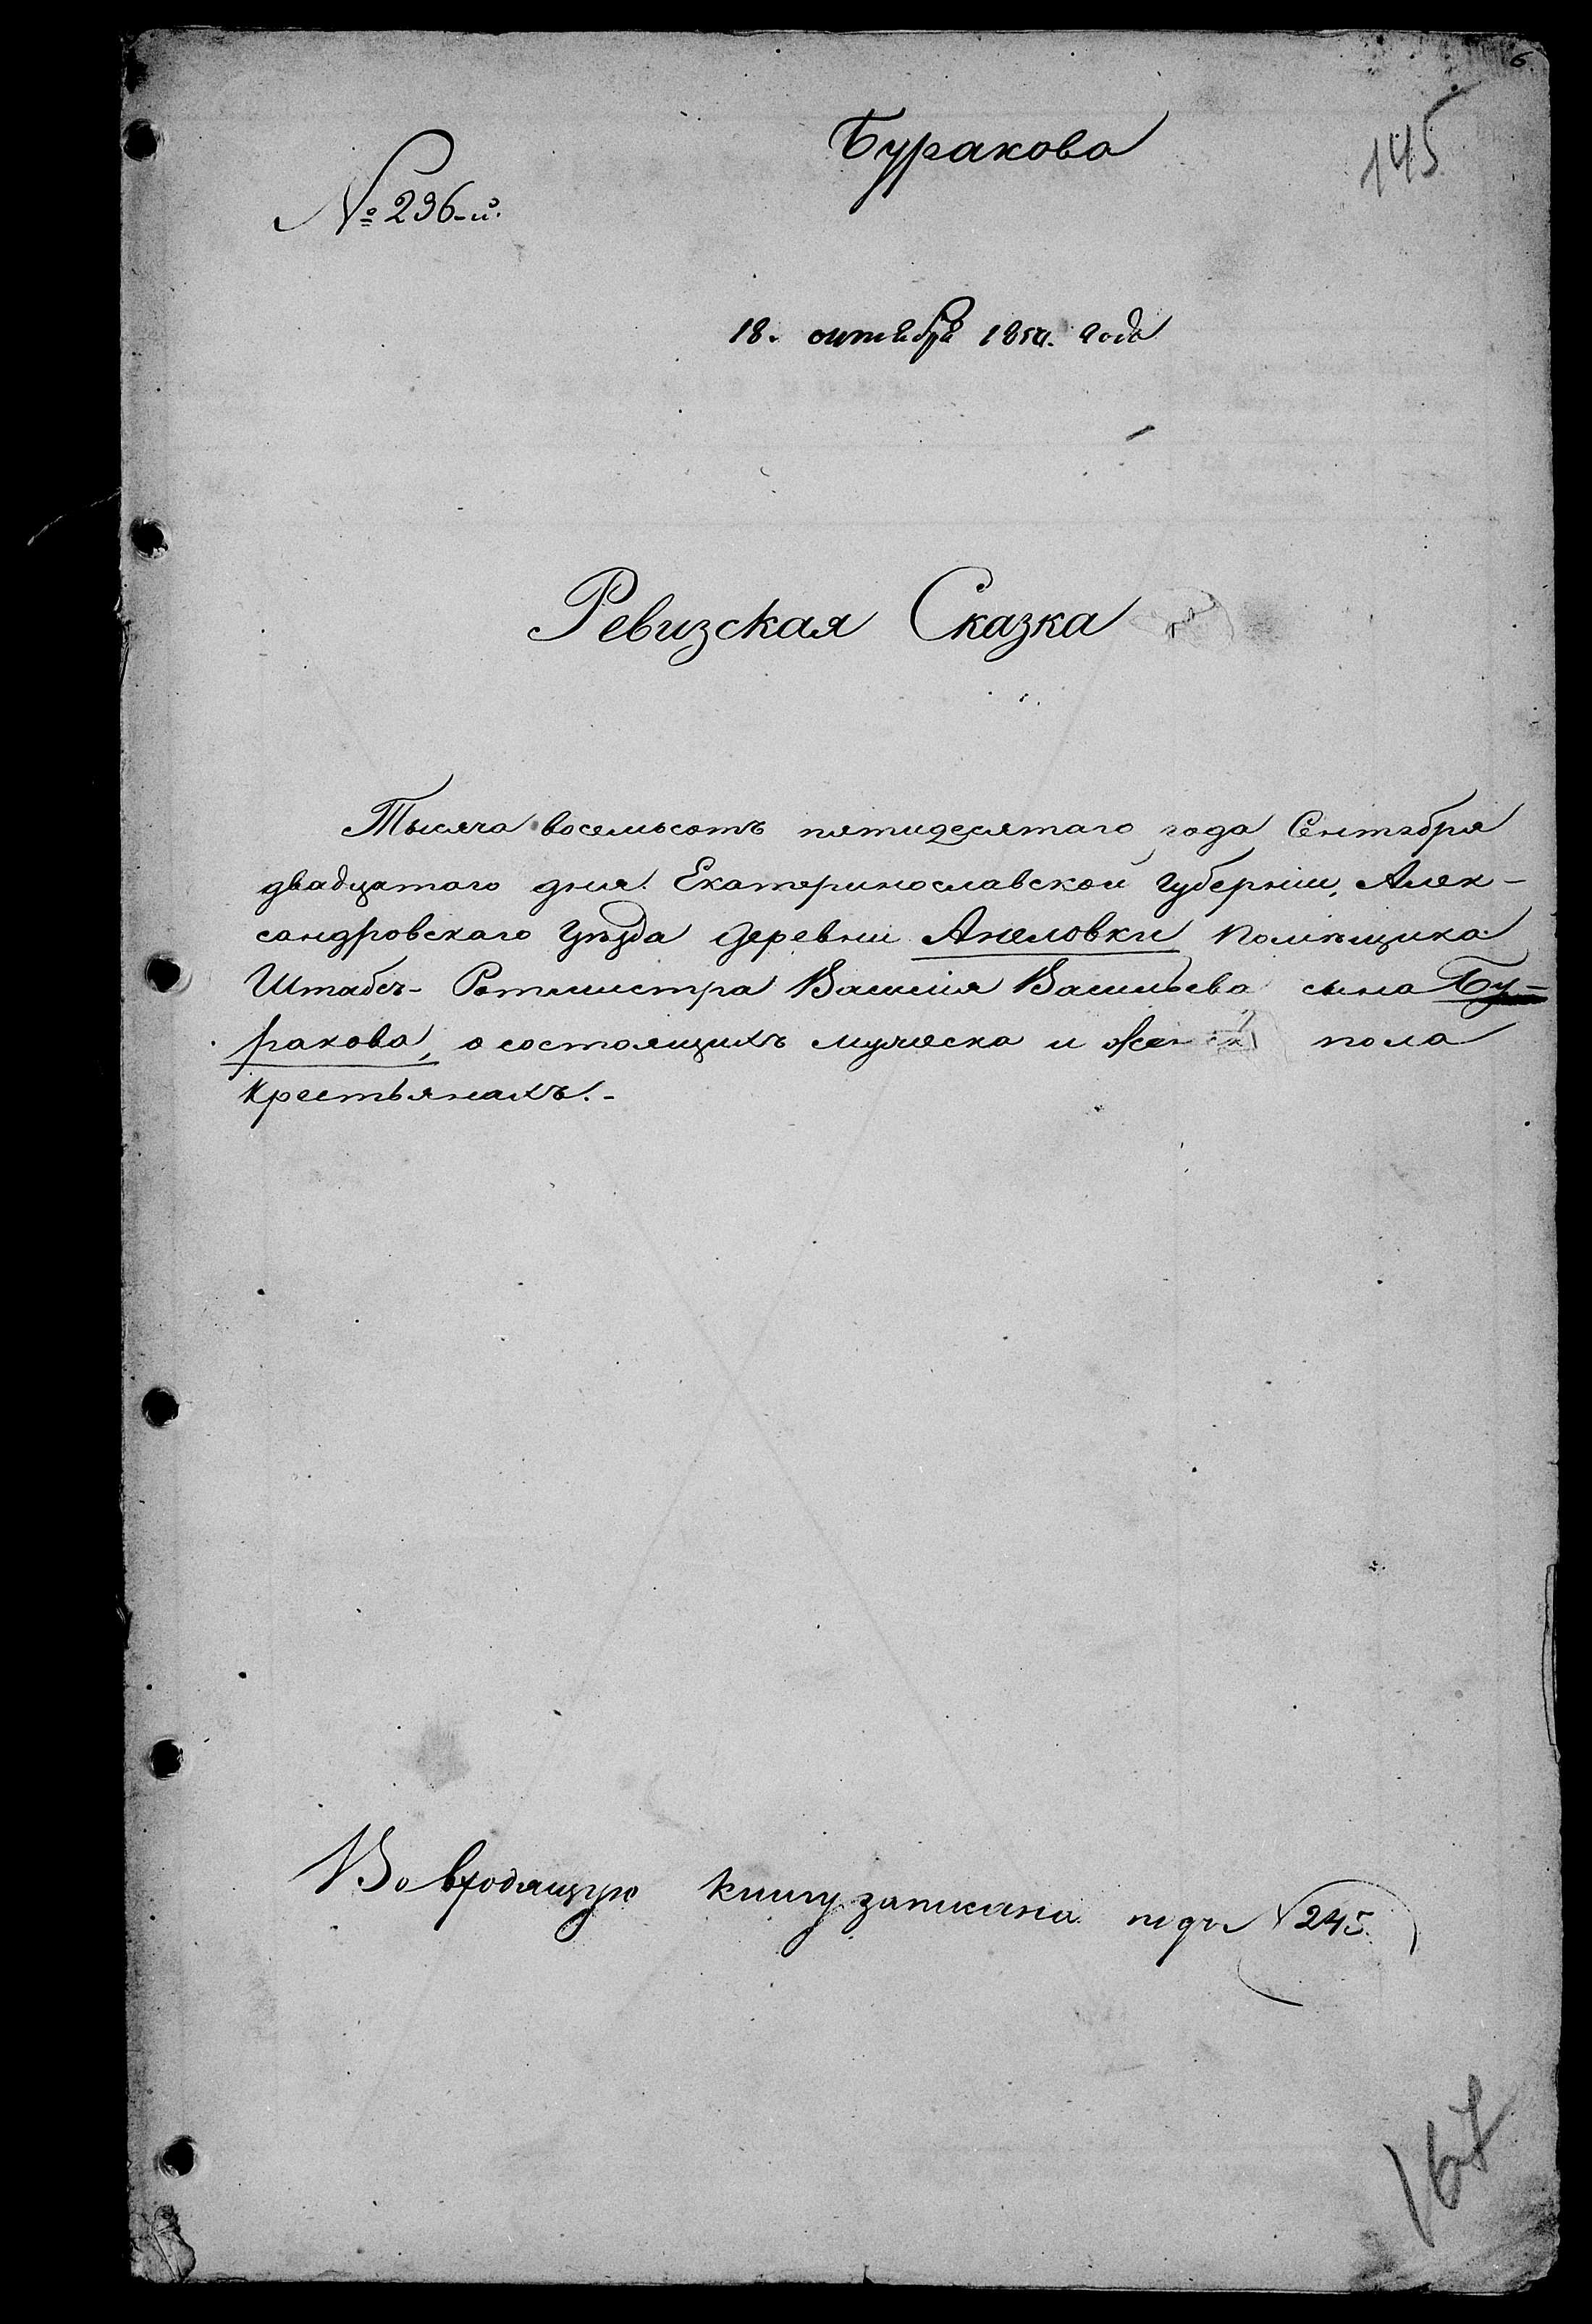 6
Буракова
145
№ 236-й.
18. октября 1850. года
Ревизская Сказка
Тысяча восемьсотъ пятидесятаго года Сентября
двадцатаго дня. Екатеринославской Губерніи, Алек-
сандровскаго Уѣзда деревни Анеловки Помѣщика
Штабсъ-Ротмистра Василія Васильева сына Бу-
ракова, о состоящихъ мужеска и пола
крестьянахъ.-
Во входящую книгу записана подъ № 245.
167